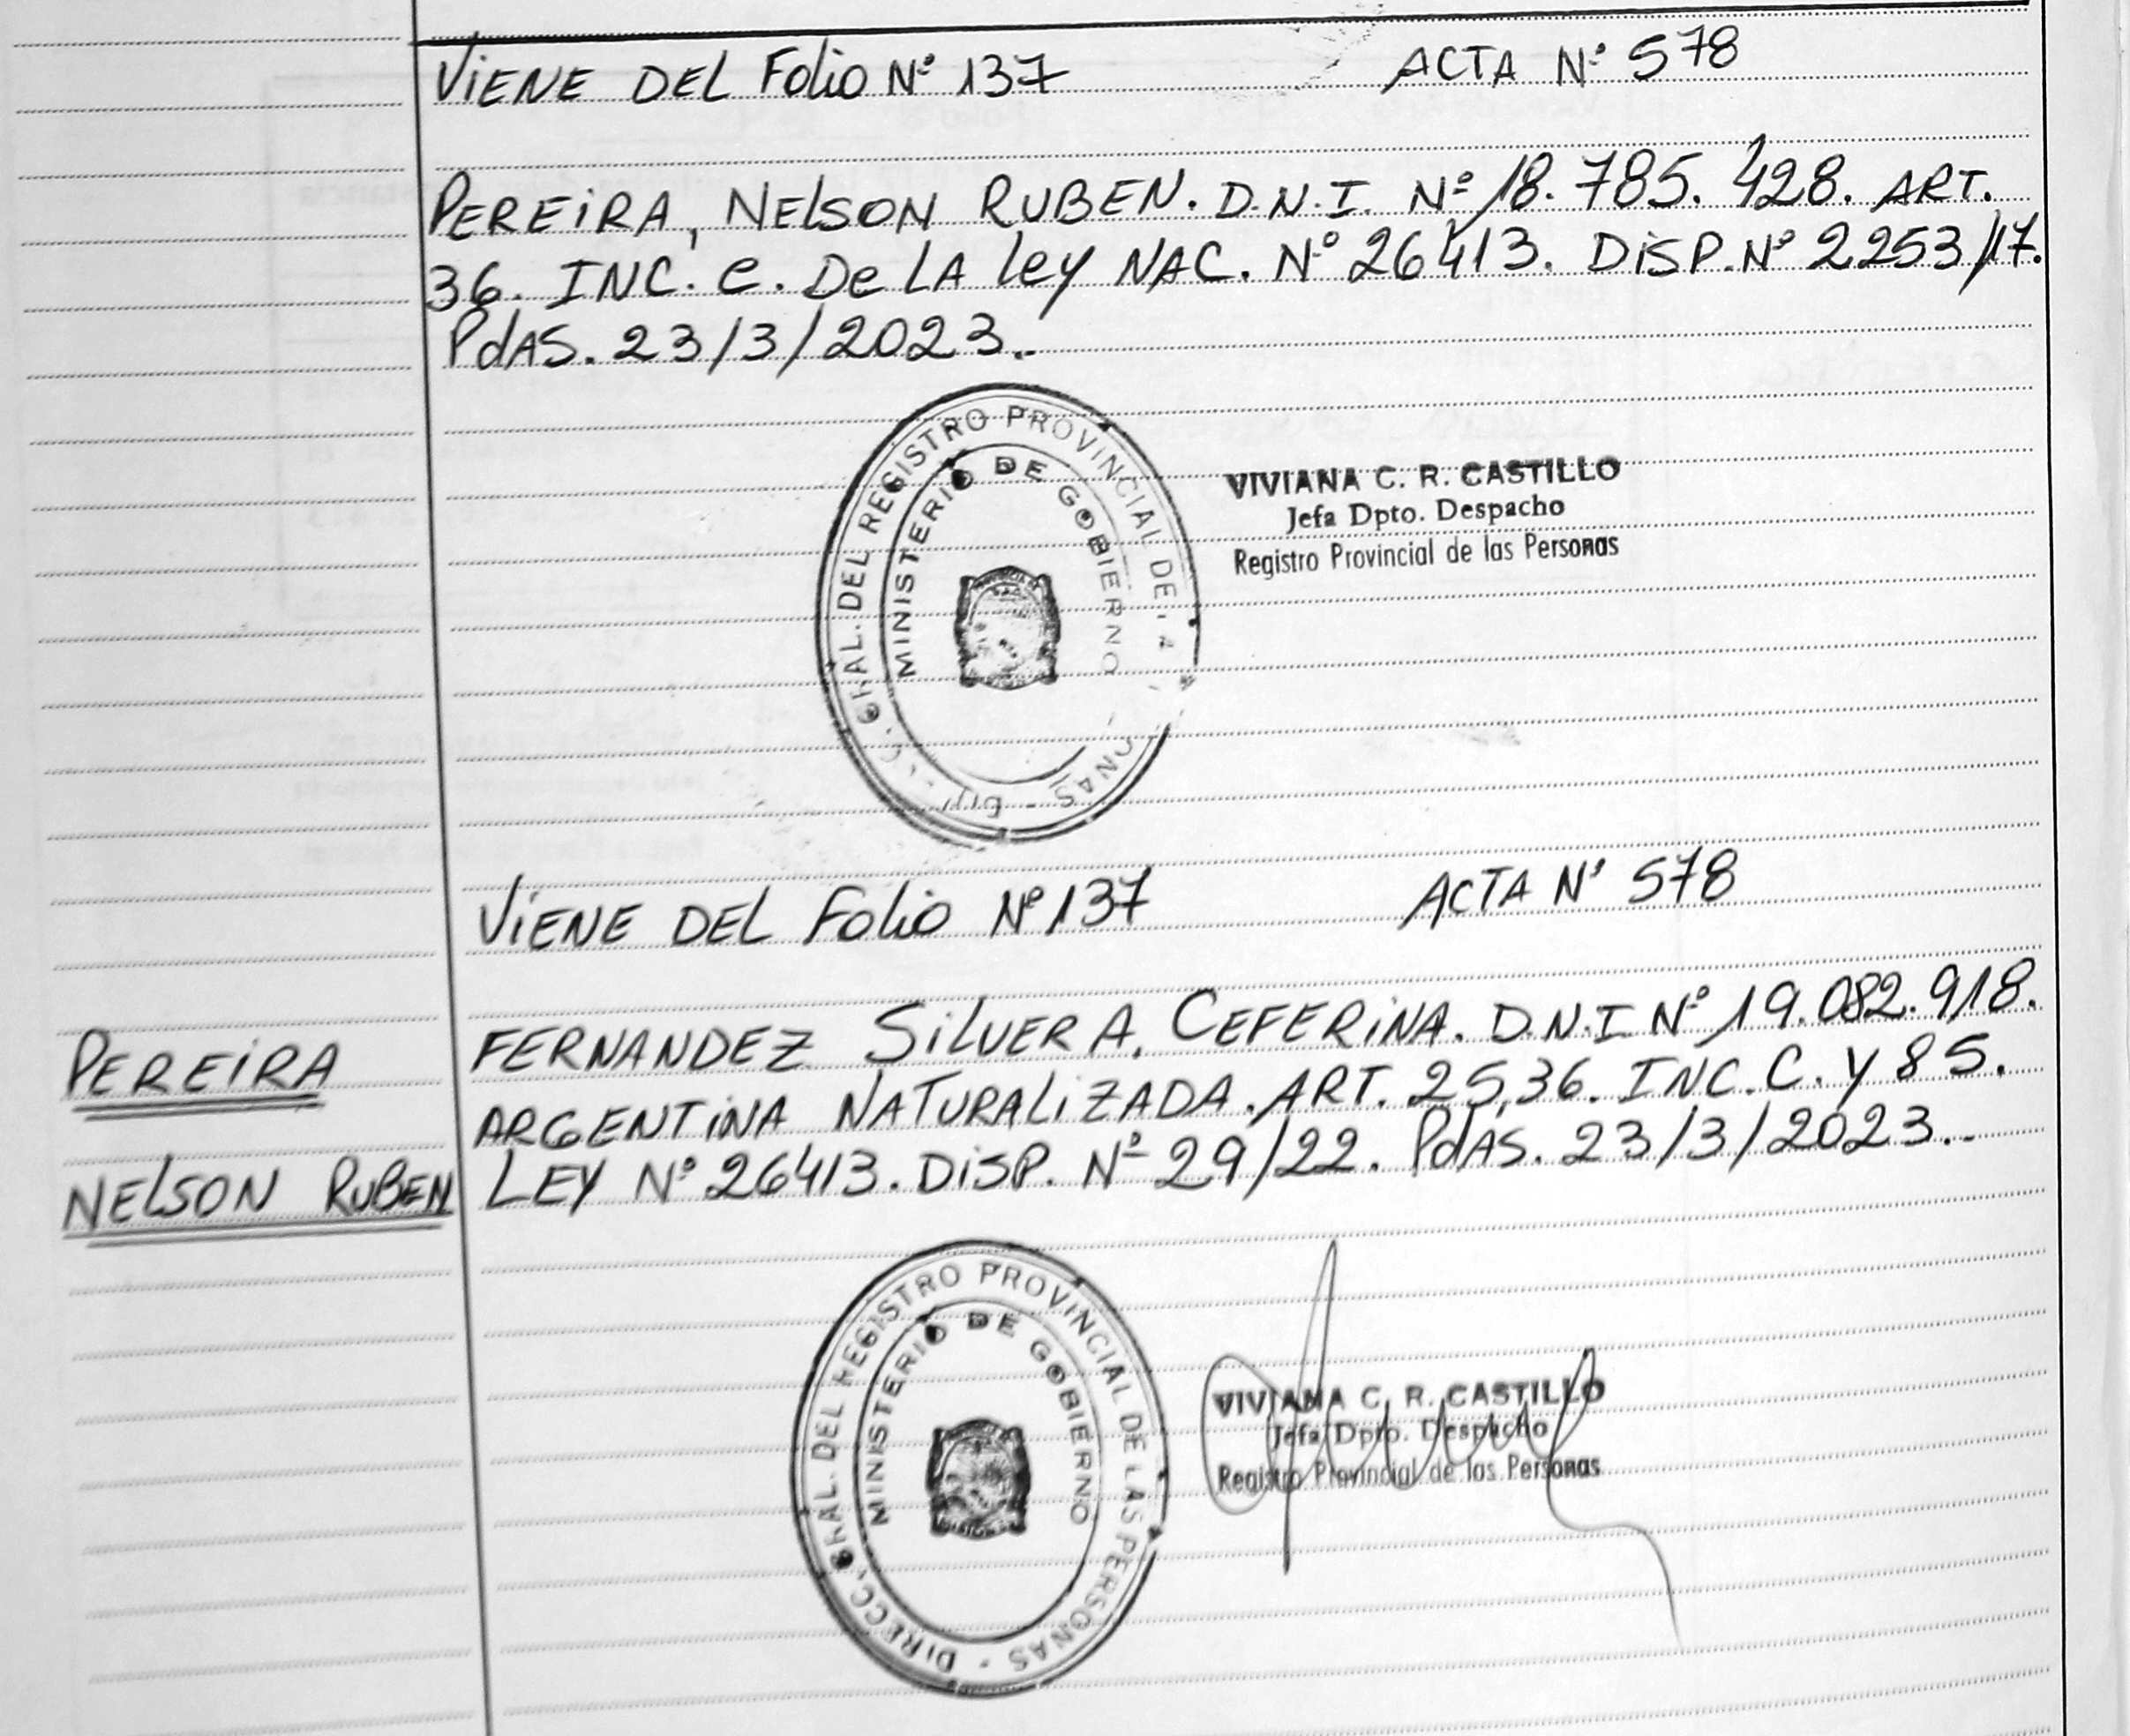 VIENE DEL FOLIO Nº 137 ACTA Nº 578
PEREIRA, NELSON RUBEN. D.N.I. Nº 18.785.428. ART.
36. INC. C. DE LA LEY NAC. Nº 26413. DISP. Nº 2253/17.
PdAS. 23/3/2023.-
GRAL. DEL REGISTRO PROVINCIAL DE
MINISTERIO DE GOBIERNO
VIVIANA C. R. CASTILLO
Jefa Dpto. Despacho
Registro Provincial de las Personas
VIENE DEL FOLIO Nº 137 ACTA Nº 578
PEREIRA
NELSON RUBEN
FERNANDEZ SILVERA, CEFERINA. D.N.I Nº 19.082.918.
ARGENTINA NATURALIZADA. ART. 25,36. INC. C. Y 85.
LEY Nº 26413. DISP. Nº 29/22. PdAS. 23/3/2023.-
DIRECC. GRAL. DEL REGISTRO PROVINCIAL DE LAS PERSONAS -
MINISTERIO DE GOBIERNO
VIVIANA C. R. CASTILLO
Jefa Dpto. Despacho
Registro Provincial de las Personas